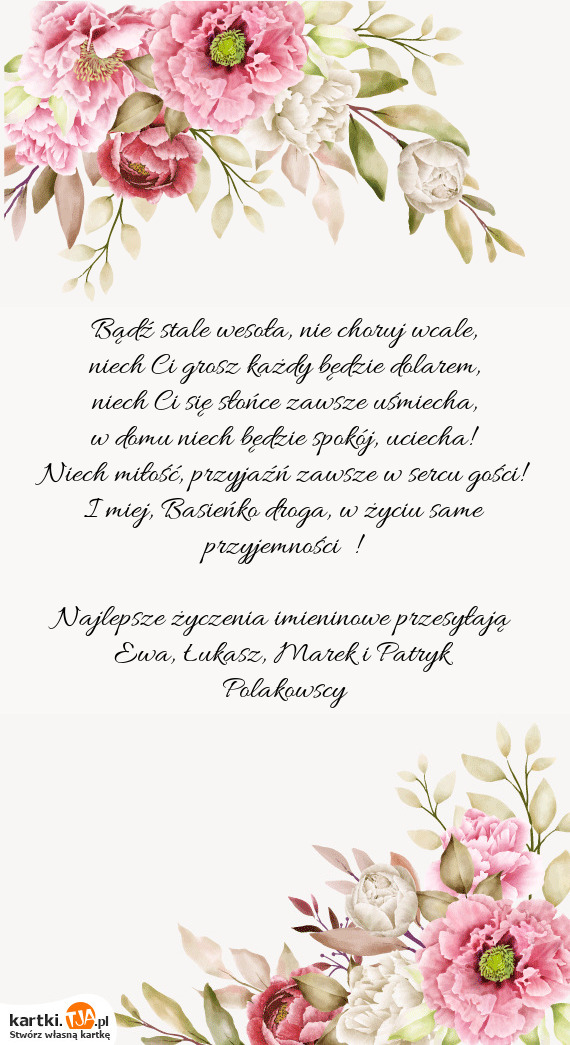 Bądź stale wesoła, nie choruj wcale,
niech Ci grosz każdy będzie dolarem,
niech Ci się słońce zawsze uśmiecha,
w domu niech będzie spokój, uciecha!
Niech miłość, przyjaźń zawsze w sercu gości!
I miej, Basieńko droga, w życiu same
przyjemności !
Najlepsze życzenia imieninowe przesyłają
Ewa, Łukasz, Marek i Patryk
Polakowscy
kartki.TJA.pl
Stwórz własną kartkę